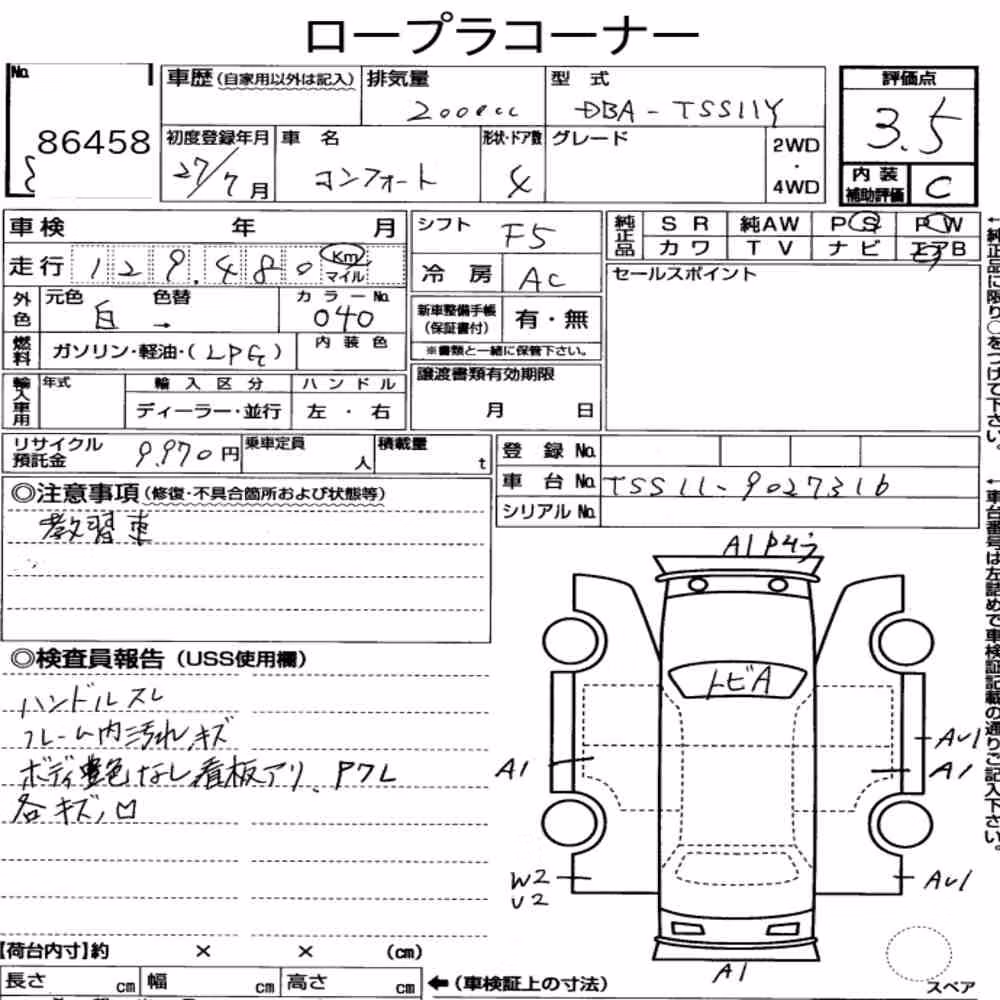 ロープラコーナー
No.
86458
車歴(自家用以外は記入)
排気量
2000cc
型 式
DBA-TSS11Y
評価点
3.5
内装補助評価
C
初度登録年月
27/7月
車 名
コンフォート
形状・ドア数
4
グレード
2WD
・
4WD
車検 年 月
走行 129.480 Km マイル
外色
元色 色替
白 →
カラーNo.
040
燃料
ガソリン・軽油・(LPG)
内装色
輸入車用
年式
輸入区分
ディーラー・並行
ハンドル
左・右
シフト
F5
冷 房
AC
新車整備手帳
(保証書付)
有・無
※書類と一緒に保管下さい。
譲渡書類有効期限
月 日
純正品
SR 純AW PS PW
カワ TV ナビ エアB
セールスポイント
←純正品に限り○をつけて下さい。
リサイクル預託金
9.970円
乗車定員
人
積載量
t
登 録 No.
車 台 No.
TSS11-9027316
シリアル No.
←車台番号は左詰めで車検証記載の通りご記入下さい。
◎注意事項(修復・不具合箇所および状態等)
教習車
◎検査員報告(USS使用欄)
ハンドルスレ
フレーム内汚れキズ
ボディ艶色なし看板アリ、P7レ
各キズ凹
A1 P4
トビA
A1
AU1
A1
W2
U2
AU1
A1
スペア
【荷台内寸】約 × × (cm)
長さ cm 幅 cm 高さ cm
←(車検証上の寸法)